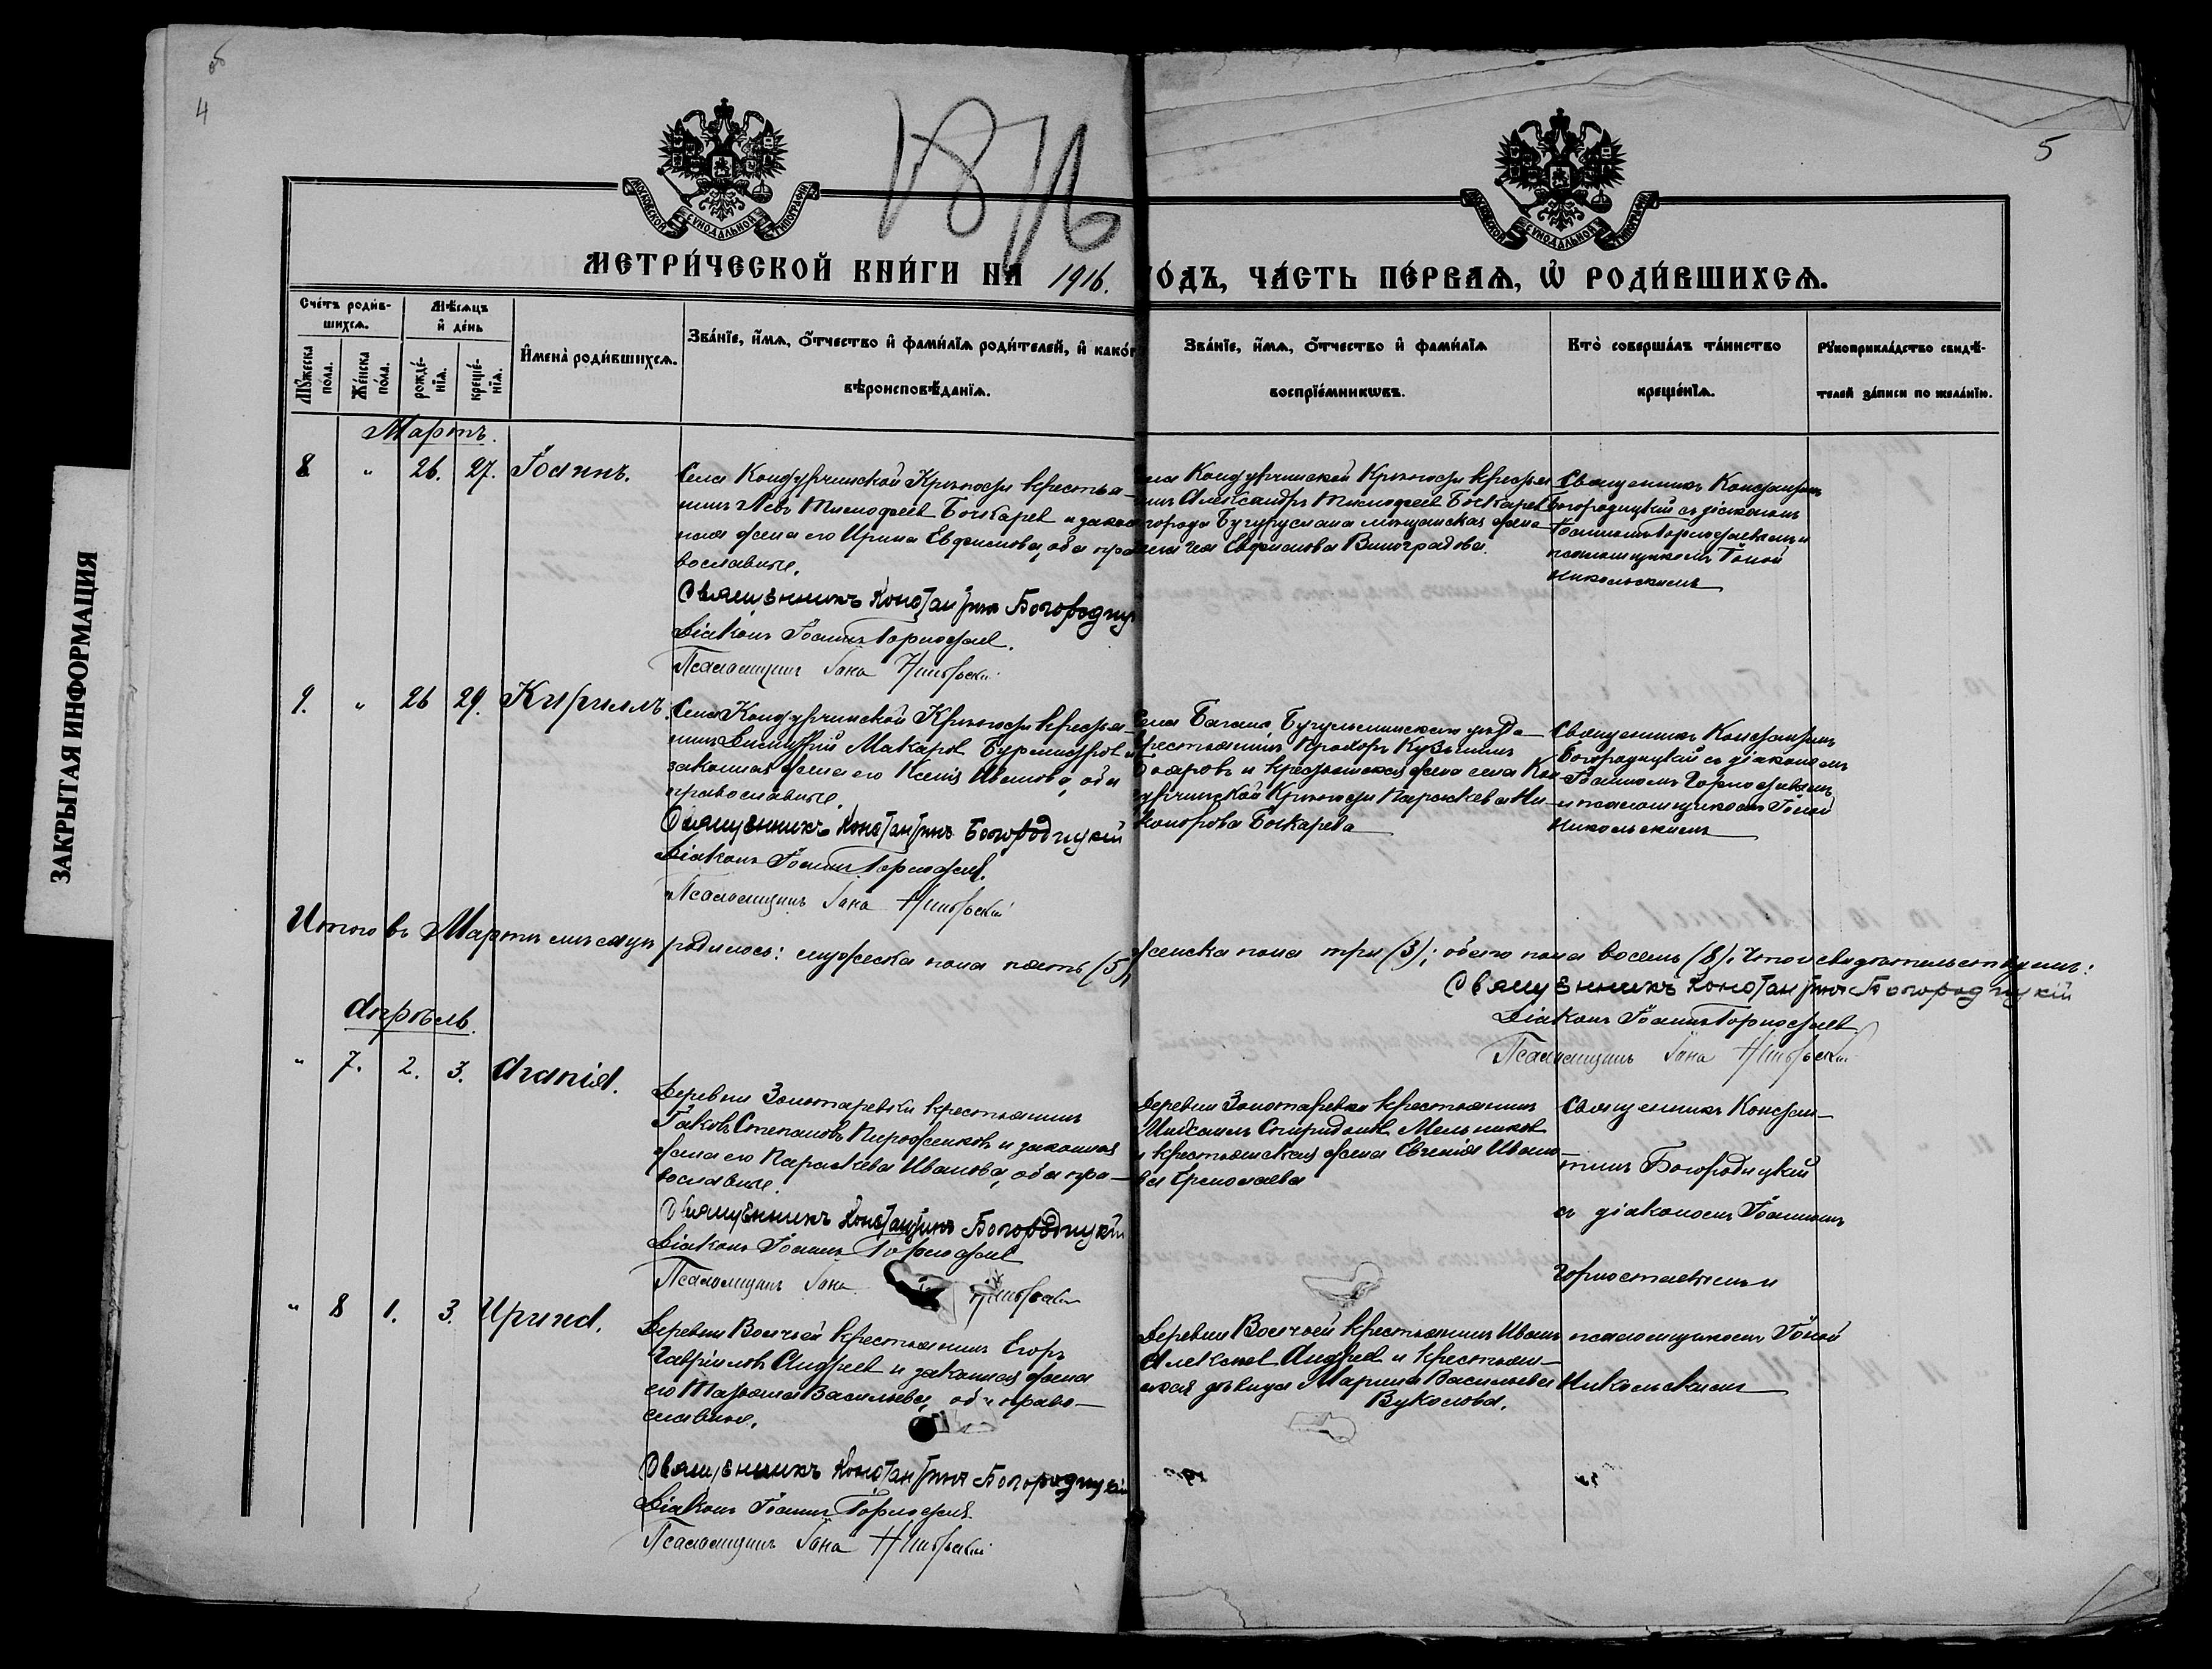 об
4
1816
5
МОСКОВСКОЙ СѴНОДАЛЬНОЙ ТИПОГРАФІИ
МОСКОВСКОЙ СѴНОДАЛЬНОЙ ТИПОГРАФІИ
МЕТРИ́ЧЕСКОЙ КНИ́ГИ НА 1916. ГО́ДЪ, ЧА́СТЬ ПЕ́РВАѦ, Ѡ РОДИ́ВШИХСѦ.
Сче́тъ роди́в-
шихсѧ.
Мꙋ́жеска по́ла.
Же́нска по́ла.
Мѣ́сѧцъ
и҆ де́нь
рожде́-
нїѧ.
креще́-
нїѧ.
И҆мена̀ роди́вшихсѧ.
Зва́нїе, и҆́мѧ, ѻ҆́тчество и҆ фами́лїѧ роди́телей, и҆ како́г
вѣроисповѣ́данїѧ.
Зва́нїе, и҆́мѧ, ѻ҆́тчество и҆ фами́лїѧ
воспрїе́мникѡвъ.
Кто̀ соверша́лъ та́инство
креще́нїѧ.
Рꙋкоприкла́дство свидѣ́-
телей за́писи по жела́нїю.
Мартъ.
8 " 26. 27. Іоаннъ.
Села Кондурчинской Крѣпости крестья-
нинъ Левъ Тимофеев Бочкарев и закон
ная жена его Ирина Евфимова, оба пра
вославные.
Священникъ Константинъ Богородиц
Діаконъ Іоаннъ Горностаев.
Псаломщикъ Іона Никольскій
Села Кондурчинской Крѣпости крестья
нинъ Александръ Тимофеев Бочкарев и
города Бугуруслана мѣщанская жена
Евфимова Виноградова.
Священникъ Константинъ
Богородицкій съ діакономъ
Іоанномъ Горностаевымъ и
псаломщикомъ Іоной
Никольскимъ
9. " 26 29. Кириллъ.
Села Кондурчинской Крѣпости крестья-
нинъ Димитрій Макаров Бурмистров и
законная жена его Ксенія Иванова, оба
православные.
Священникъ Константинъ Богородицкій
Діаконъ Іоаннъ Горностаев.
Псаломщикъ Іона Никольскій
Села Багана, Бугульминскаго уѣзда
крестьянинъ Прохоръ Кузьминъ
Бояровъ и крестьянская жена села Кон
дурчинской Крѣпости Параскева Ни-
конорова Бочкарева
Священникъ Константинъ
Богородицкій съ діакономъ
Іоанномъ Горностаевымъ
и псаломщикомъ Іоной
Никольскимъ
Итого въ Мартѣ мѣсяцѣ родилось: мужеска пола пять (5), женска пола три (3); обоего пола восемь (8). Что и свидѣтельствуемъ:
Священникъ Константинъ Богородицкій
Діаконъ Іоаннъ Горностаев
Псаломщикъ Іона Никольскій
Апрѣль.
" 7. 2. 3. Агапія.
Деревни Золотаревки крестьянинъ
Іаковъ Степановъ Пирожковъ и законная
жена его Параскева Иванова, оба пра-
вославные.
Священникъ Константинъ Богородицкій
Діаконъ Іоаннъ Горностаев
Псаломщикъ Іона Никольскій
Деревни Золотаревки крестьянинъ
Михаилъ Спиридонов Мельников
и крестьянская жена Евгенія Ивано-
ва Ермолаева
Священникъ Констан-
тинъ Богородицкій
съ діакономъ Іоанномъ
Горностаевымъ и
псаломщикомъ Іоной
Никольскимъ
" 8 1. 3. Ирина.
Деревни Волчьей крестьянинъ Егоръ
Гавріиловъ Андреев и законная жена
его Татьяна Васильева, оба право-
славные.
Священникъ Константинъ Богородицкій
Діаконъ Іоаннъ Горностаев
Псаломщикъ Іона Никольскій
Деревни Волчьей крестьянинъ Иванъ
Алексѣев Андреев и крестьян-
ская дѣвица Марина Васильева
Вуколова.
ЗАКРЫТАЯ ИНФОРМАЦИЯ